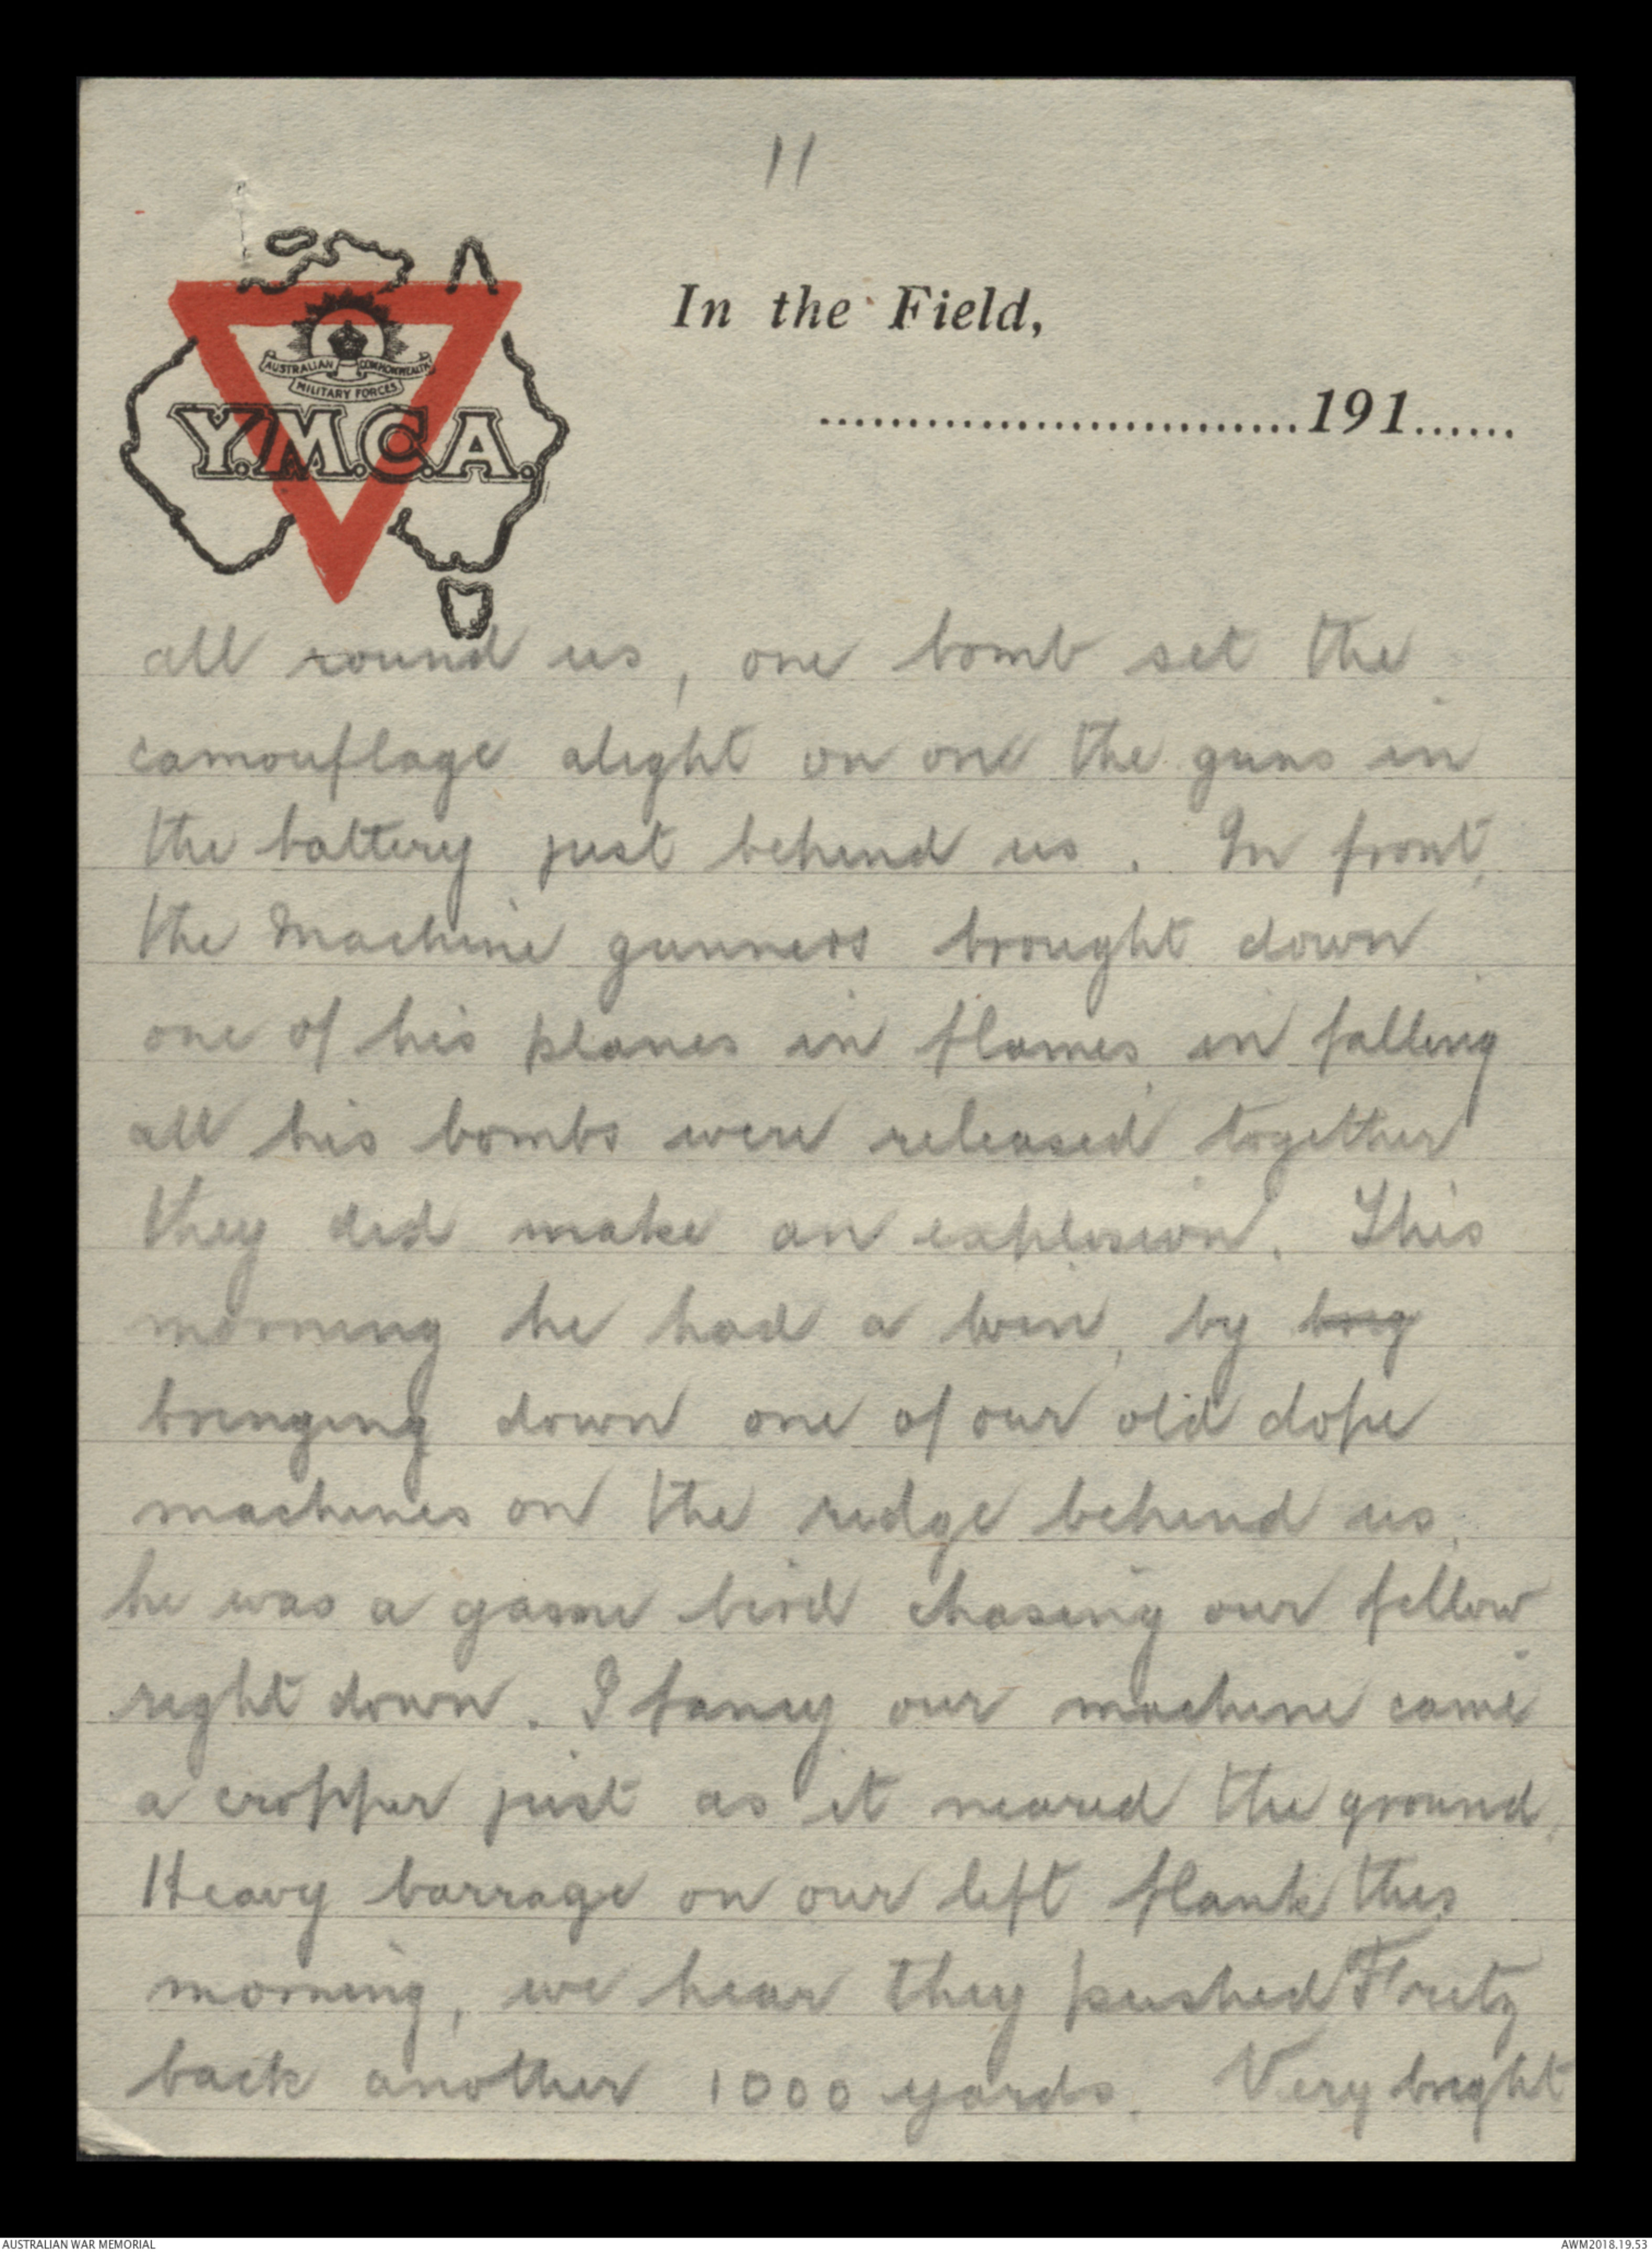 11
In the Field,
AUSTRALIAN COMMONWEALTH
MILITARY FORCES
Y.M.C.A.
..............................191......
all round us, one bomb set the
camouflage alight on one the guns in
the battery just behind us. In front,
the Machine gunners brought down
one of his planes in flames, in falling
all his bombs were released together
they did make an explosion. This
morning he had a win, by brig
bringing down one of our old dope
machines on the ridge behind us,
he was a game bird chasing our fellow
right down. I fancy our machine came
a cropper just as it neared the ground.
Heavy barrage on our left flank this
morning, we hear they pushed Fritz
back another 1000 yards. Very bright
AUSTRALIAN WAR MEMORIAL
AWM2018.19.53